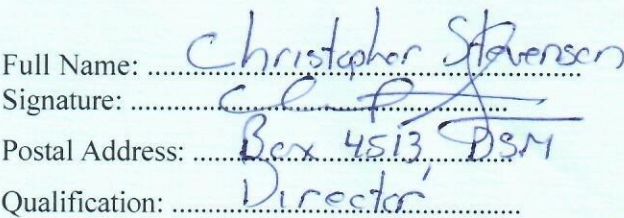 Full Name: Christopher Stevenson
Signature:
Postal Address: Box 4513 DSM
Qualification: Director